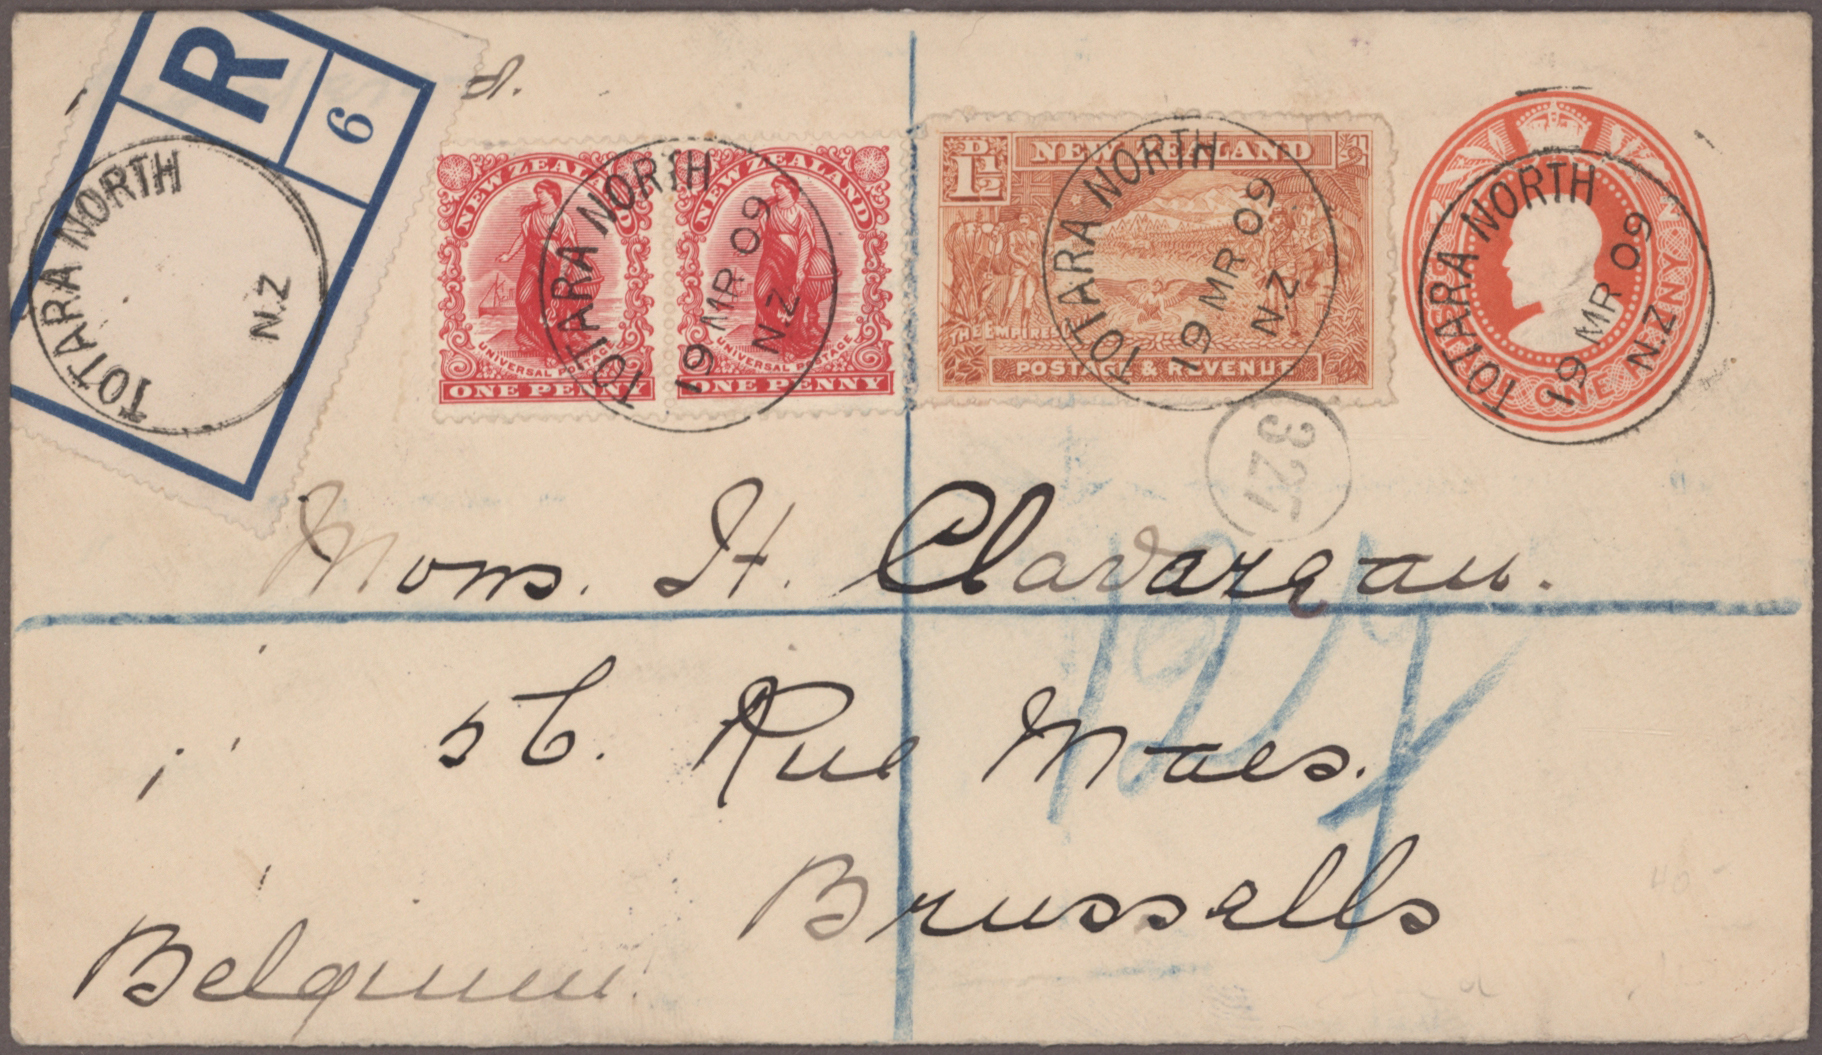 R
6
TOTARA NORTH
N.Z
d.
NEW ZEALAND
UNIVERSAL POSTAGE
ONE PENNY
TOTARA NORTH
19 MR 09
N.Z
NEW ZEALAND
UNIVERSAL POSTAGE
ONE PENNY
D
1½
NEW ZEALAND
1½
THE EMPIRE'S
POSTAGE & REVENUE
TOTARA NORTH
19 MR 09
N.Z
ONE PENNY
TOTARA NORTH
19 MR 09
N.Z
327
Mons. H. Clavareau.
56. Rue Maes.
Brussells
Belgium.